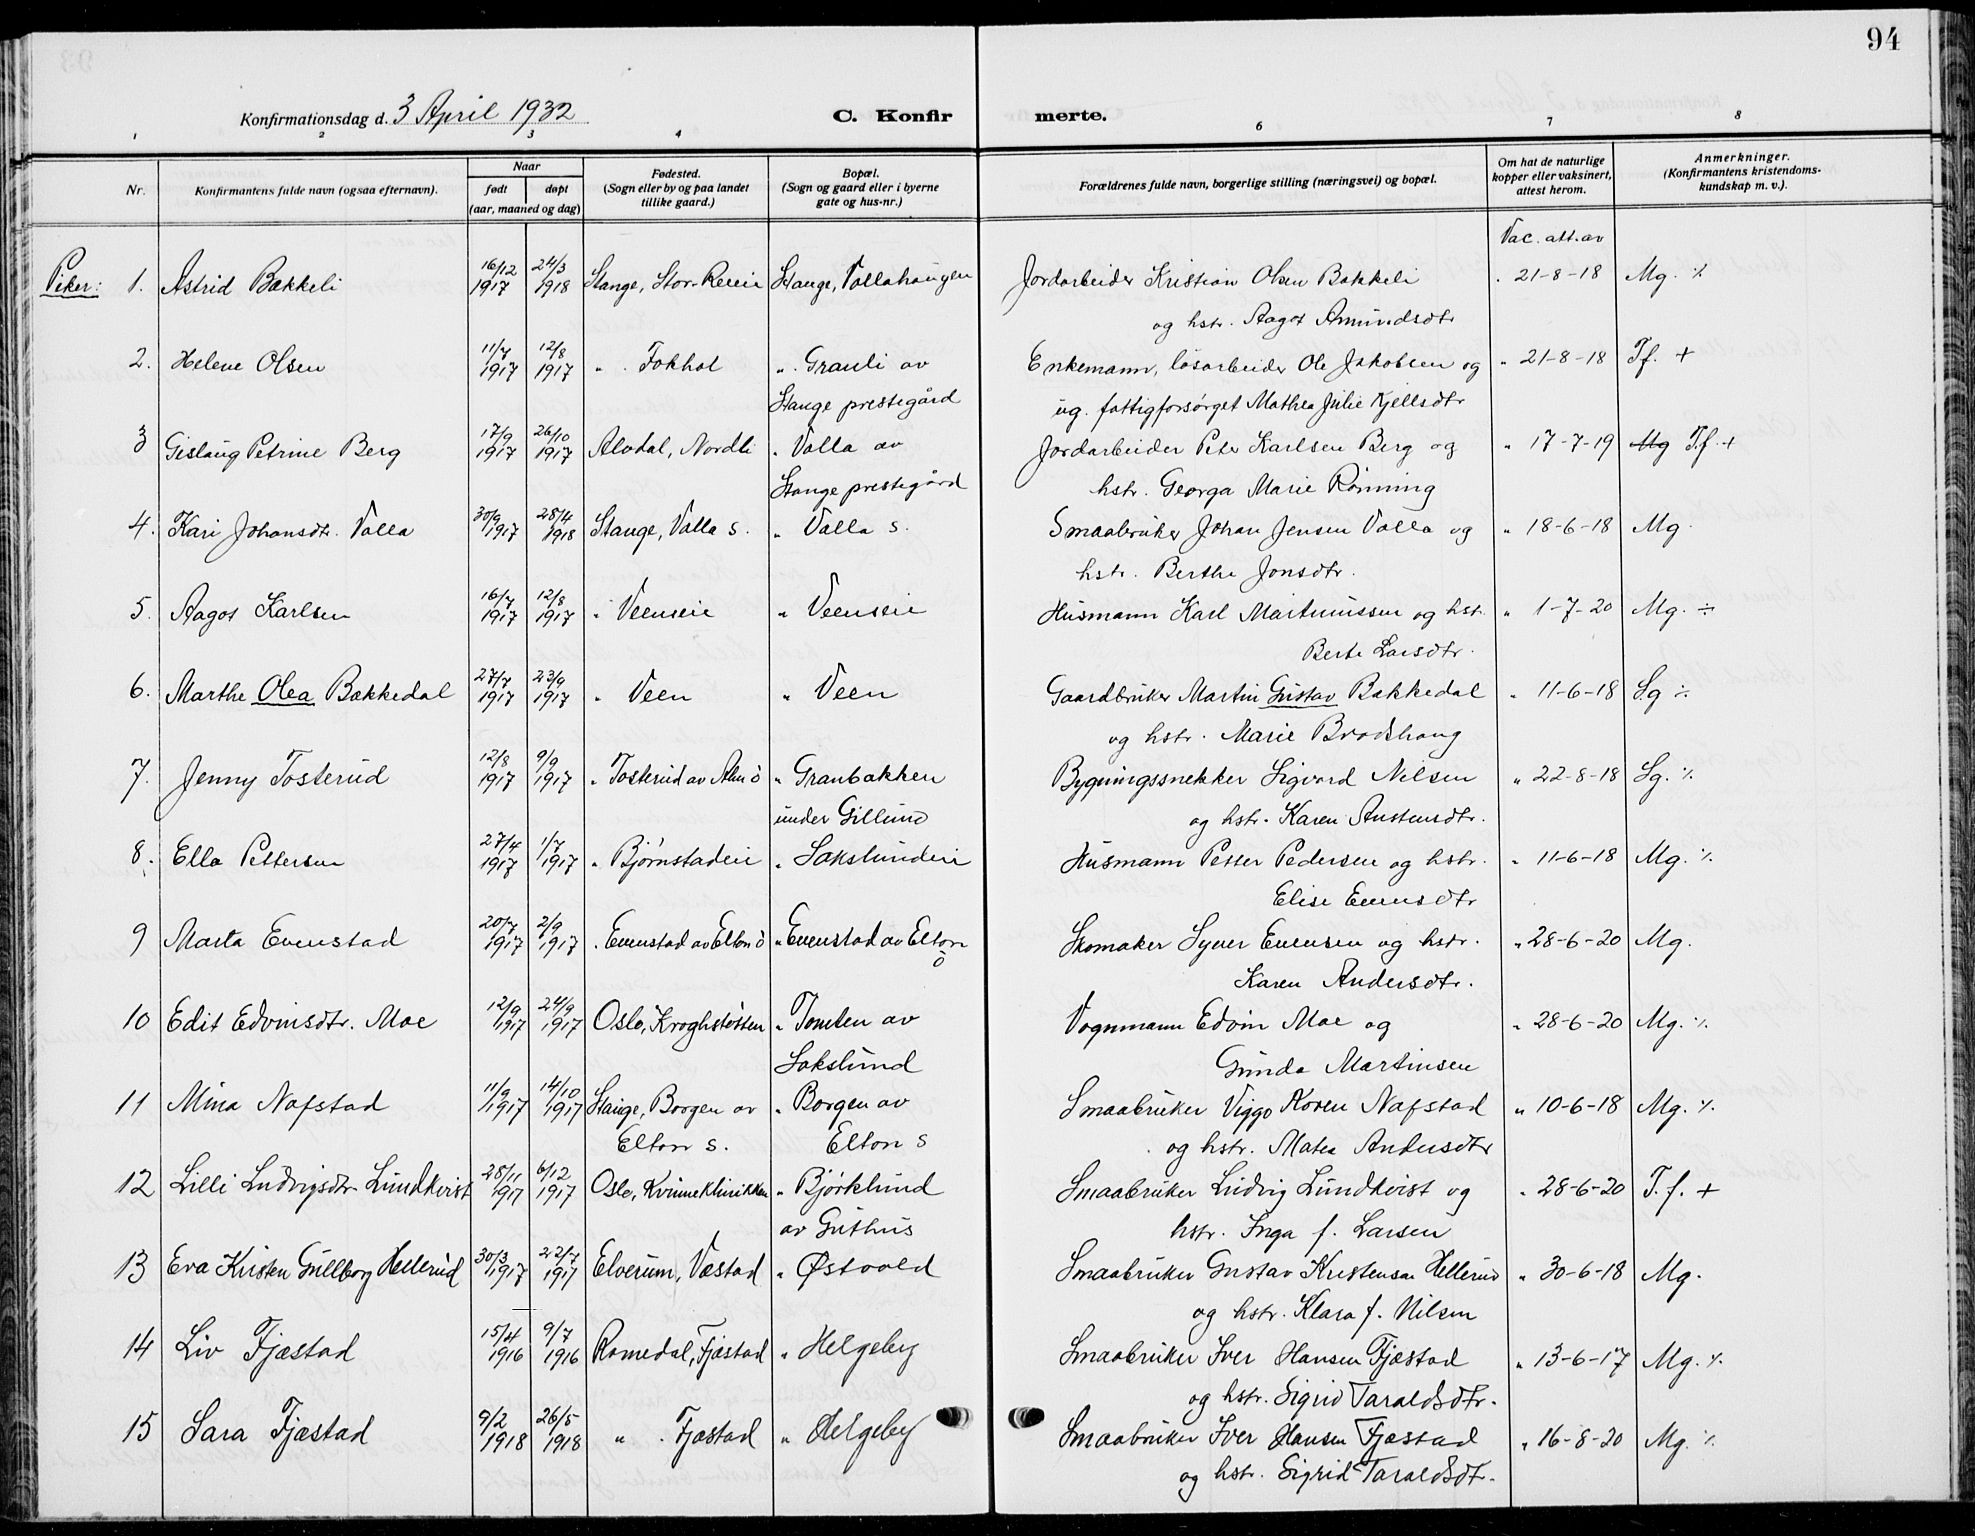 94
Konfirmationsdag d. 3 April 1932
C. Konfirmerte.
1 2 3 4 6 7 8
Nr. | Konfirmantens fulde navn (ogsaa efternavn). | Naar født døpt (aar, maaned og dag) | Fødested. (Sogn eller by og paa landet tillike gaard.) | Bopæl. (Sogn og gaard eller i byerne gate og hus-nr.) | Forældrenes fulde navn, borgerlige stilling (næringsvei) og bopæl. | Om hat de naturlige kopper eller vaksinert, attest herom. | Anmerkninger. (Konfirmantens kristendomskundskap m. v.).
Vac. att. av
Piker: 1. Astrid Bækkeli 16/12 1917 24/3 1918 Stange, Stor-Reeie Stange, Vollahaugen Jordarbeider Kristian Olsen Bækkeli . 21-8-18 Mg. ٪
og hstr. Aagot Amundsdtr
2. Helene Olsen 11/7 1917 12/8 1917 " Fokhol " Granli av Enkemann, løsarbeider Ole Jakobsen og " 21-8-18 Tf. +
Stange prestegård ug. fattigforsørget Mathea Julie Kjellsdtr
3 Gislaug Petrine Berg 17/9 1917 26/10 1917 Alvdal, Nordli " Volla av Jordarbeider Peter Karlsen Berg og " 17-7-19 Mg T.f. +
Stange prestegård hstr. Georga Marie Rønning
4. Kari Johansdtr. Valla 30/9 1917 28/4 1918 Stange, Valla s. " Valla s. Smaabruker Johan Jensen Valla og " 18-6-18 Mg.
hstr. Berthe Jonsdtr.
5. Aagot Karlsen 16/7 1917 12/8 1917 " Veenseie " Veenseie Husmann Karl Martinussen og hst. " 1-7-20 Mg. ÷
Berte Larsdtr.
6. Marthe Olea Bækkedal 27/7 1917 23/9 1917 " Veen " Veen Gaardbruker Martin Gustav Bækkedal " 11-6-18 S.g ٪
og hstr. Marie Brodshaug
7. Jenny Tosterud 12/8 1917 9/9 1917 " Tosterud av Alm ö " Granbakken Bygningssnekker Sigvard Nilsen " 22-8-18 Sg. ٪
under Gillund og hstr. Karen Austensdtr.
8. Ella Pettersen 27/4 1917 1/7 1917 " Bjørnstadeie " Sakslundeie Husmann Petter Pedersen og hstr. " 11-6-18 Mg. ٪
Elise Evensdtr
9 Marta Evenstad 20/7 1917 2/9 1917 " Evenstad av Elton ö " Evenstad av Elton ö Skomaker Syver Evensen og hstr. " 28-6-20 Mg.
Karen Andersdtr.
10 Edit Edvinsdtr. Moe 12/9 1917 24/9 1917 Oslo, Kroghstøtten " Tomten av Vognmann Edvin Moe og " 28-6-20 Mg. ٪
Sakslund Gunda Martinsen
11 Mina Nafstad 11/9 1917 14/10 1917 Stange, Borgen av " Borgen av Smaabruker Viggo Koren Nafstad " 10-6-18 Mg. ٪
Elton s. Elton s og hstr. Matea Andersdtr
12 Lilli Ludvigsdtr. Lundkvist 28/11 1917 6/12 1917 Oslo, Kvinneklinikken " Bjørklund Smaabruker Ludvig Lundkvist og " 28-6-20 T.f. +
av Guthus hstr. Inga f. Larsen
13 Eva Kirsten Gullborg Hellerud 30/3 1917 22/7 1917 Elverum, Vestad " Østvold Smaabruker Gustav Kristensen Hellerud " 30-6-18 Mg.
og hstr. Klara f. Nilsen
14 Liv Fjæstad 15/4 1916 9/7 1916 Romedal, Fjæstad " Helgeby Smaabruker Iver Hansen Fjæstad " 13-6-17 Mg. ٪
og hstr. Sigrid Taraldsdtr.
15 Sara Fjæstad 9/2 1918 26/5 1918 " Fjæstad " Helgeby Smaabruker Iver Hansen Fjæstad " 16-8-20 Mg. ٪
og hstr. Sigrid Taraldsdtr.